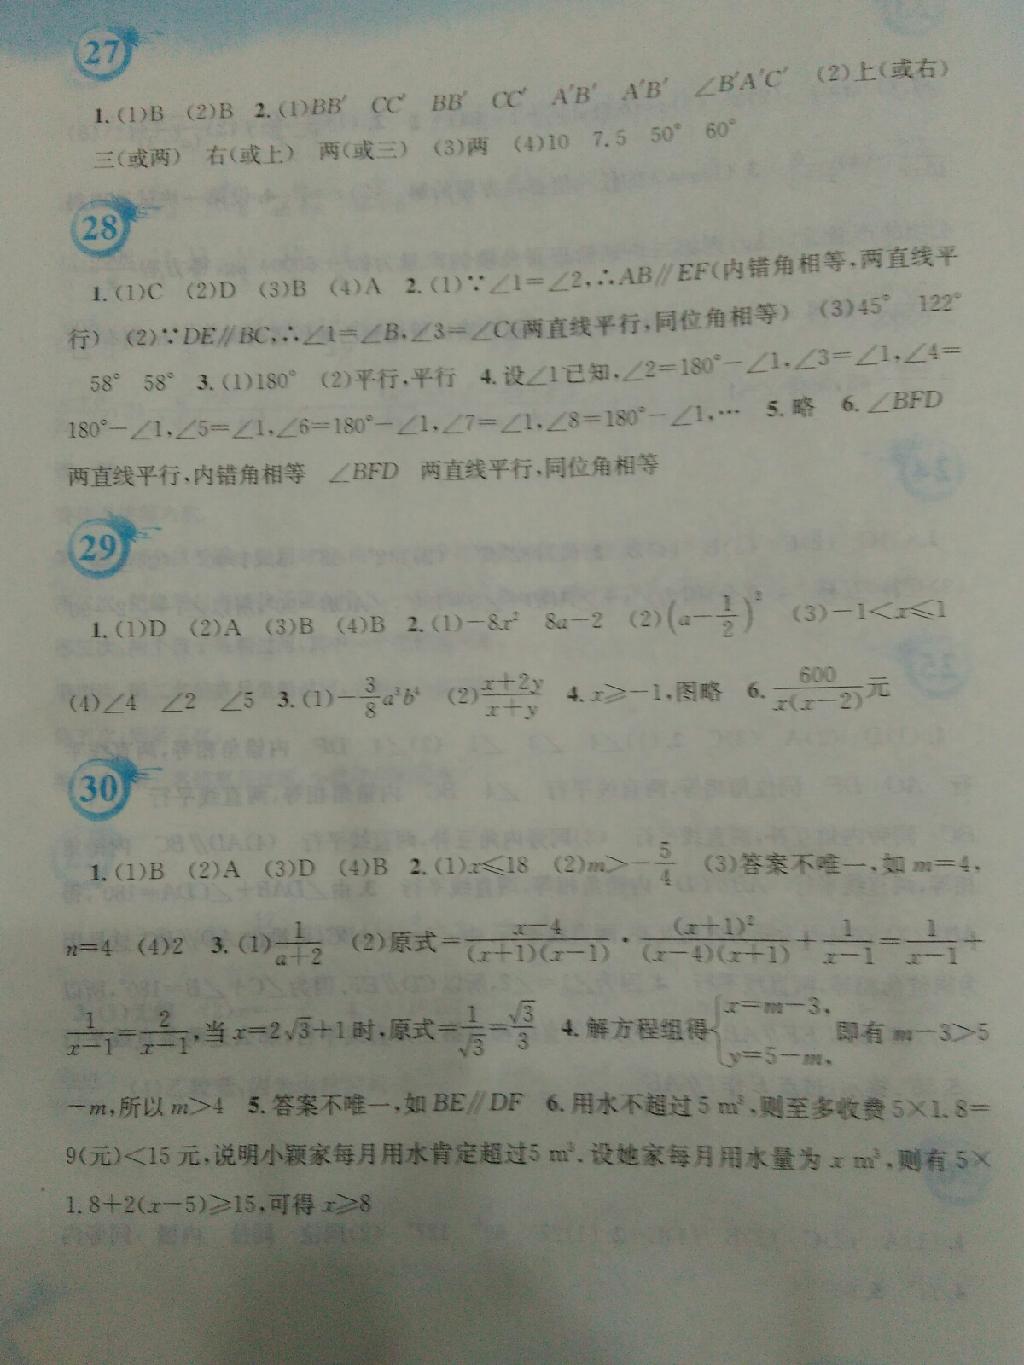 27
1.(1)B (2)B 2.(1)BB′ CC′ BB′ CC′ A′B′ A′B′ ∠B′A′C′ (2)上(或右)
三(或两) 右(或上) 两(或三) (3)两 (4)10 7.5 50° 60°
28
1.(1)C (2)D (3)B (4)A 2.(1)∵∠1=∠2,∴AB∥EF(内错角相等,两直线平
行) (2)∵DE∥BC,∴∠1=∠B,∠3=∠C(两直线平行,同位角相等) (3)45° 122°
58° 58° 3.(1)180° (2)平行,平行 4.设∠1已知,∠2=180°-∠1,∠3=∠1,∠4=
180°-∠1,∠5=∠1,∠6=180°-∠1,∠7=∠1,∠8=180°-∠1,… 5.略 6.∠BFD
两直线平行,内错角相等 ∠BFD 两直线平行,同位角相等
29
1.(1)D (2)A (3)B (4)B 2.(1)-8x² 8a-2 (2)(a-1/2)² (3)-1<x≤1
(4)∠4 ∠2 ∠5 3.(1)-3/8a³b⁴ (2)(x+2y)/(x+y) 4.x≥-1,图略 6.600/(x(x-2))元
30
1.(1)B (2)A (3)D (4)B 2.(1)x≤18 (2)m>-5/4 (3)答案不唯一,如m=4,
n=4 (4)2 3.(1)1/(a+2) (2)原式=(x-4)/((x+1)(x-1))·(x+1)²/((x-4)(x+1))+1/(x-1)=1/(x-1)+
1/(x-1)=2/(x-1),当x=2√3+1时,原式=1/√3=√3/3 4.解方程组得{x=m-3, y=5-m, 即有m-3>5
-m,所以m>4 5.答案不唯一,如BE∥DF 6.用水不超过5 m³,则至多收费5×1.8=
9(元)<15元,说明小颖家每月用水肯定超过5 m³.设她家每月用水量为x m³,则有5×
1.8+2(x-5)≥15,可得x≥8